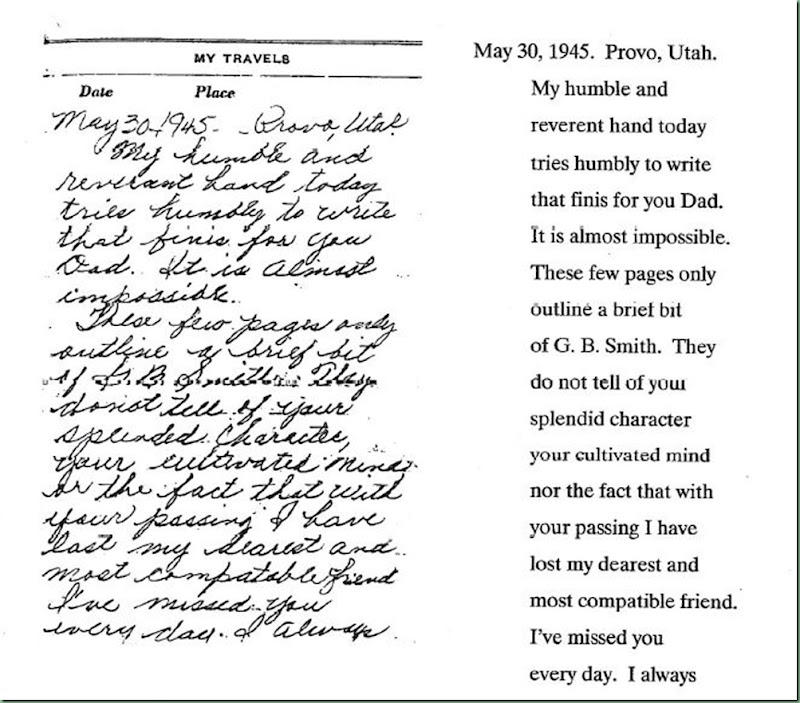 MY TRAVELS
Date Place
May 30, 1945 - Provo, Utah
My humble and
reverant hand today
tries humbly to write
that finis for you
Dad. It is almost
impossible.
These few pages only
outline a brief bit
of G. B. Smith. They
do not tell of your
splended character,
your cultivated mind
or the fact that with
your passing I have
lost my dearest and
most compatable friend
I've missed you
every day. I always
May 30, 1945. Provo, Utah.
My humble and
reverent hand today
tries humbly to write
that finis for you Dad.
It is almost impossible.
These few pages only
outline a brief bit
of G. B. Smith. They
do not tell of your
splendid character
your cultivated mind
nor the fact that with
your passing I have
lost my dearest and
most compatible friend.
I've missed you
every day. I always